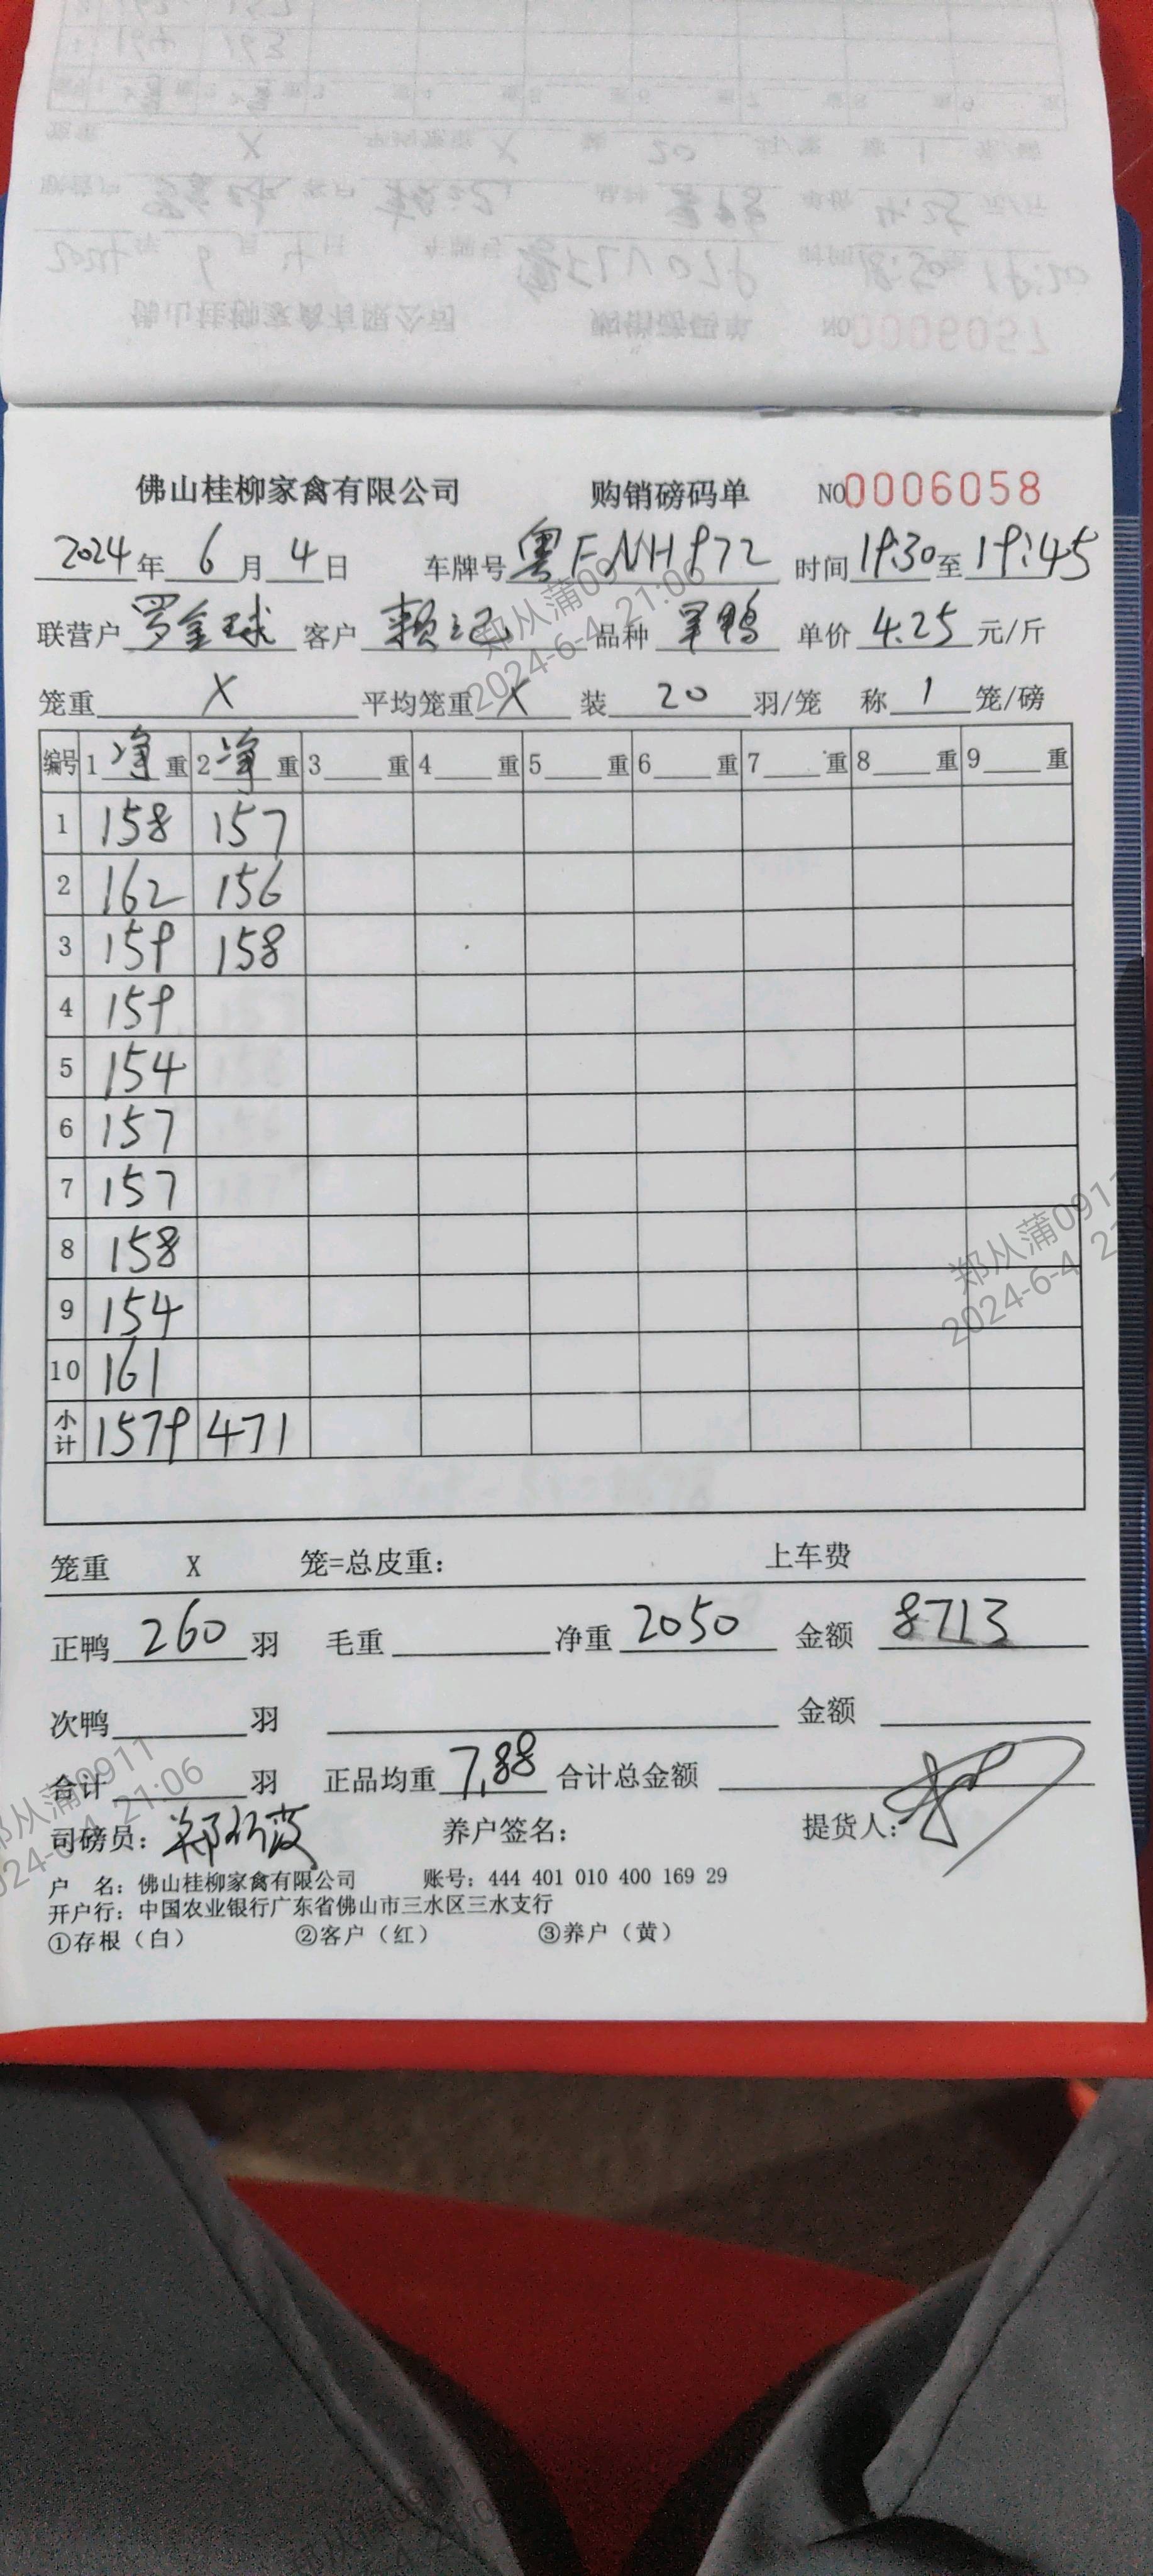 佛山桂柳家禽有限公司 购销磅码单 NO0006058
2024年6月4日 车牌号粤F.NH972 时间19:30至19:45
联营户罗金球 客户赖记 品种旱鸭 单价4.25元/斤
笼重X 平均笼重X 装20羽/笼 称1笼/磅
编号 1净重 2净重 3重 4重 5重 6重 7重 8重 9重
1 158 157
2 162 156
3 159 158
4 159
5 154
6 157
7 157
8 158
9 154
10 161
小计 1579 471
笼重 X 笼=总皮重： 上车费
正鸭260羽 毛重 净重2050 金额8713
次鸭 羽 金额
合计 羽 正品均重7.88 合计总金额
司磅员： 养户签名： 提货人：
户 名：佛山桂柳家禽有限公司 账号：444 401 010 400 169 29
开户行：中国农业银行广东省佛山市三水区三水支行
①存根（白） ②客户（红） ③养户（黄）
郑从蒲0911
2024-6-4 21:06